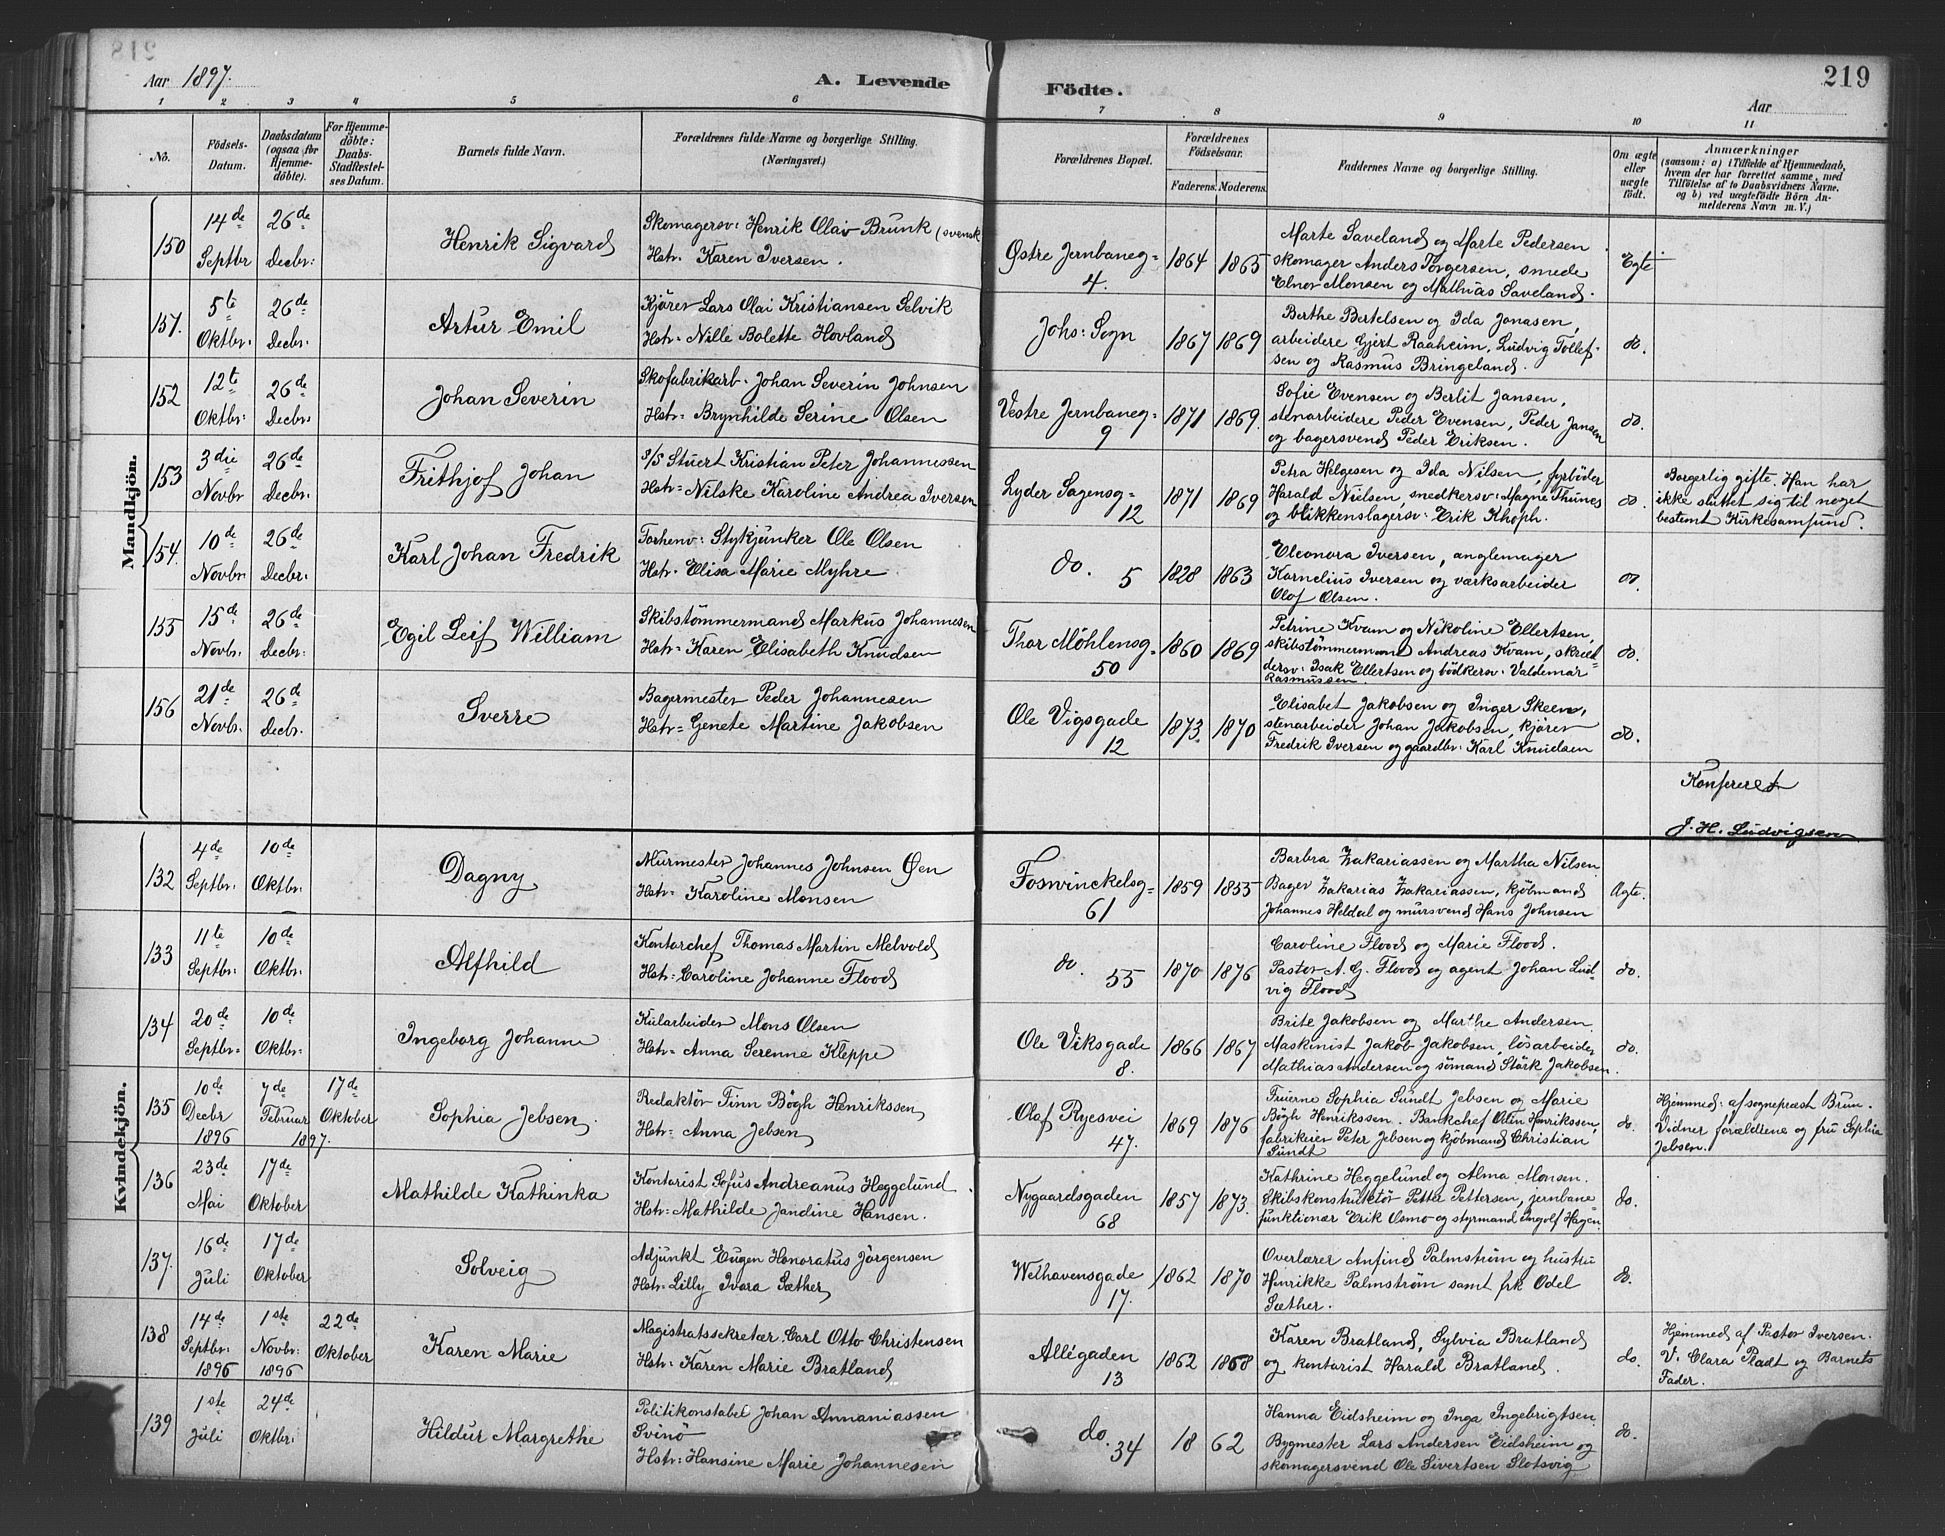 Aar 1897. A. Levende Födte. Aar 219
1 2 3 4 5 6 7 8 9 10 11
No. Födsels-Datum. Daabsdatum (ogsaa for Hjemme-döbte). For Hjemme-döbte: Daabs-Stadfæstel-ses Datum. Barnets fulde Navn. Forældrenes fulde Navne og borgerlige Stilling. (Næringsvei.) Forældrenes Bopæl. Forældrenes Födselsaar. Faderens. Moderens. Faddernes Navne og borgerlige Stilling. Om ægte eller uægte födt. Anmærkninger (saasom: a) i Tilfælde af Hjemmedaab, hvem der har forrettet samme, med Tilföielse af to Daabsvidners Navne, og b) ved uægtefödte Börn An-melderens Navn m. V.)
Mandkjön.
150 14de Septbr 26de Decbr: Henrik Sigvard
Skomagersv: Henrik Olai Brunk (svensk
Hstr. Karen Iversen.
Östre Jernbaneg= 4. 1864 1865
Marte Saveland og Marte Pedersen
skomager Anders Torgersen, smede
Elnor Monsen og Mathias Saveland.
Egte
151. 5te Oktbr: 26de Decbr: Artur Emil
Kjörer Lars Olai Kristiansen Selvik
Hstr= Nille Bolette Hovland
Johs: Sogn 1867 1869
Berthe Bertelsen og Ida Jonasen,
arbeidere Gjert Raaheim, Ludvig Tollef-
sen og Rasmus Bringeland.
do.
152 12te Oktbr: 26de Decbr: Johan Severin
Skofabrikarb. Johan Severin Johnsen
Hstr= Brynhilde Serine Olsen
Vestre Jernbaneg= 9 1871 1869.
Sofie Evensen og Berlit Jansen,
stenarbeidere Peder Evensen, Peder Jansen
og bagersvend Peder Eriksen.
do.
153 3die Novbr 26de Decbr: Frithjof Johan
S/S Stuert Kristian Peter Johannessen
Hstr= Nilske Karoline Andrea Iversen
Lyder Sagensg= 12 1871 1869
Petra Helgesen og Ida Nilsen, fyrböder
Harald Nielsen, snedkersv. Magne Thunes
og blikkenslagersv. Erik Knoph.
do.
Borgerlig gifte. Han har
ikke sluttet sig til noget
bestemt Kirkesamfund.
154. 10de Novbr 26de Decbr: Karl Johan Fredrik
Forhenv: Stykjunker Ole Olsen
Hstr. Elisa Marie Myhre.
do. 5 1828 1863
Eleonora Iversen, anglemager
Kornelius Iversen og værksarbeider
Olof Olsen.
do.
155 15de Novbr. 26de Decbr: Egil Leif William
Skibstömmermand Markus Johannesen
Hstr= Karen Elisabeth Knudsen
Thor Möhlensg= 50 1860 1869
Petrine Kvam og Nikoline Ellertsen,
skibstömmermand Andreas Kvam, skræd-
dersv: Isak Ellertsen og bödkersv. Valdemar
Rasmussen.
do.
156 21de Novbr. 26de Decbr. Sverre
Bagermester Peder Johannesen
Hstr= Genete Martine Jakobsen
Ole Vigsgade 12 1873. 1870
Elisabet Jakobsen og Inger Skeen,
stenarbeider Johan Jakobsen, kjörer
Fredrik Iversen og gaardbr: Karl Knudsen
do.
Konfereret
J. H. Ludvigsen
Kvindekjön.
132 4de Septbr: 10de Oktbr: Dagny
Murmester Johannes Johnsen Öen
Hstr= Karoline Monsen
Foswinckelsg= 61 1859 1855
Barbra Zakariassen og Martha Nilsen
Bager Zakarias Zakariassen, kjöbmand
Johannes Heldal og mursvend Hans Johnsen
Ægte.
133 11te Septbr: 10de Oktbr: Alfhild
Kontorchef Thomas Martin Melvold
Hstr= Caroline Johanne Flood
do. 55 1870 1876
Caroline Flood og Marie Flood.
Pastor A. G. Flood og agent Johan Lud-
vig Flood
do.
134 20de Septbr= 10de Oktbr: Ingeborg Johanne
Kularbeider Mons Olsen
Hstr= Anna Serenne Kleppe
Ole Viksgade 8. 1866 1867
Brite Jakobsen og Marthe Andersen.
Maskinist Jakob Jakobsen, lösarbeider
Mathias Andersen og sömand Störk Jakobsen.
do.
135 10de Decbr 1896 7de Februar 1897. 17de Oktober Sophia Jebsen.
Redaktör Finn Bögh Henrikssen
Hstr= Anna Jebsen
Olaf Ryesvei 47. 1869 1876
Fruerne Sophia Sundt Jebsen og Marie
Bögh Henrikssen. Bankchef Olin Henrikssen,
fabrikeier Peter Jebsen og kjöbmand Christian
Sundt
do.
Hjemmed. af sognepræst Brun.
Vidner forældrene og fru Sophia
Jebsen.
136 23de Mai 17de Oktober Mathilde Kathinka
Kontorist Sofus Andreanus Heggelund
Hstr= Mathilde Jandine Hansen.
Nygaardsgaden 68 1857 1873.
Kathrine Heggelund og Alma Monsen.
Skibskonstruktör Petter Pettersen, jernbane
funktionær Erik Osmo og styrmand Ingolf Hagen.
do.
137. 16de Juli 17de Oktober Solveig
Adjunkt Eugen Honoratus Jörgensen
Hstr= Lilly Ivara Sæther
Welhavensgade 17. 1862 1870
Overlærer Anfind Palmström og hustru
Henrikke Palmström samt frk Odel
Sæther.
do.
138 14de Septbr. 1896 1ste Novbr: 1896 22de Oktober Karen Marie
Magistratssekretær Carl Otto Christensen
Hstr= Karen Marie Bratland
Allégaden 13 1862 1868
Karen Bratland, Sylvia Bratland
og kontorist Harald Bratland.
do.
Hjemmed af Pastor Iversen.
V. Clara Pladt og Barnets
Fader.
139 1ste Juli 24de Oktbr: Hildur Margrethe
Politikonstabel Johan Annaniassen
Svinö
Hstr= Hansine Marie Johannesen
do. 34 18 62
Hanna Eidsheim og Inga Ingebrigtsen.
Bygmester Lars Andersen Eidsheim og
skomagersvend Ole Sivertsen Slotsvig
do.